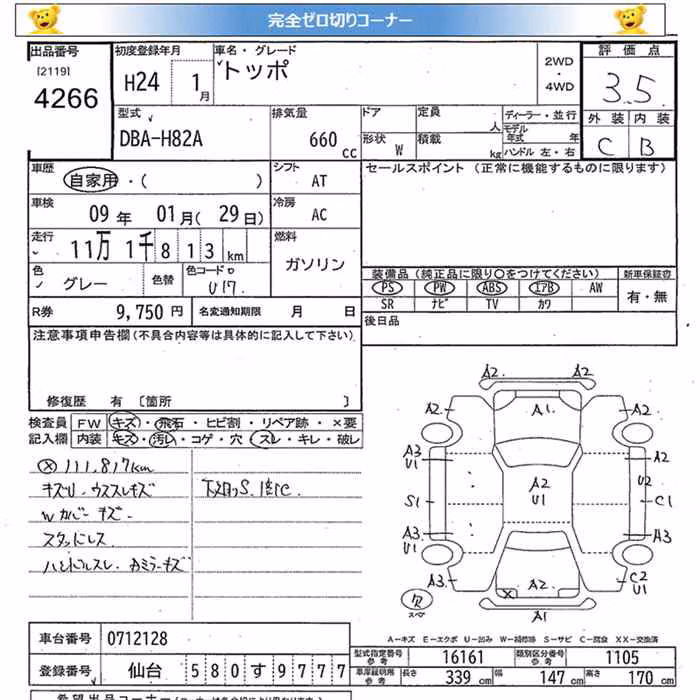 完全ゼロ切りコーナー
出品番号
[2119]
4266
初度登録年月
H24 1月
車名・グレード
トッポ
2WD
・
4WD
評価点
3.5
外装 内装
C B
型式
DBA-H82A
排気量
660 cc
ドア
形状 W
定員 人
積載 kg
ディーラー・並行
モデル年式 年
ハンドル 左・右
車歴
自家用・( )
シフト
AT
セールスポイント (正常に機能するものに限ります)
車検
09年 01月(29日)
冷房
AC
走行
11万1千813km
燃料
ガソリン
色
グレー
色替
色コード
U17
装備品 (純正品に限り○をつけてください)
新車保証書
PS PW ABS エアB AW
SR ナビ TV カワ
有・無
R券
9,750円
名変通知期限 月 日
後日品
注意事項申告欄(不具合内容等は具体的に記入して下さい)
修復歴 有 [箇所 ]
検査員
記入欄
FW キズ・飛石・ヒビ割・リペア跡・×要
内装 キズ・汚レ・コゲ・穴・スレ・キレ・破レ
111,817km
キズU.ウススレキズ
Wカバーキズ
スタッドレス
A2. A2
A2. A1. A2
A3 U1 A2
A2 U1
U2
S1 C1
A3 U1 A3
A3 A2 C2 U1
X
欠
スペア
A1
A-キズ E-エクボ U-凹み W-補修跡 S-サビ C-腐食 XX-交換済
車台番号 0712128
登録番号 仙台 580す9777
型式指定番号 参考 16161
類別区分番号 参考 1105
車庫証明用 参考 長さ 339cm 幅 147cm 高さ 170cm